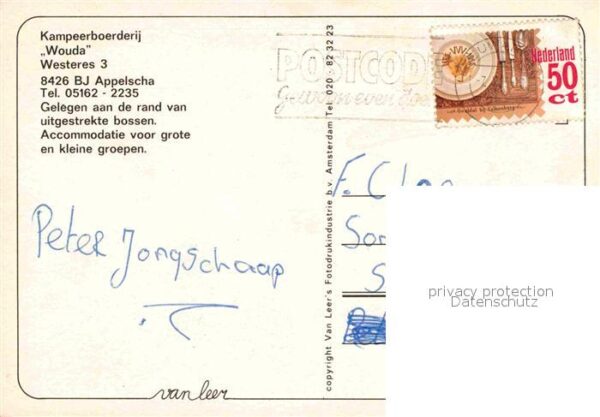 Kampeerboerderij
„Wouda”
Westeres 3
8426 BJ Appelscha
Tel. 05162 - 2235
Gelegen aan de rand van
uitgestrekte bossen.
Accommodatie voor grote
en kleine groepen.
Peter Jongschaap
van leer
copyright Van Leer's Fotodrukindustrie b.v. Amsterdam Tel. 020 - 82 32 23
POSTCODE
Gewoon even doen
Nederland
50
ct
F.
privacy protection
Datenschutz